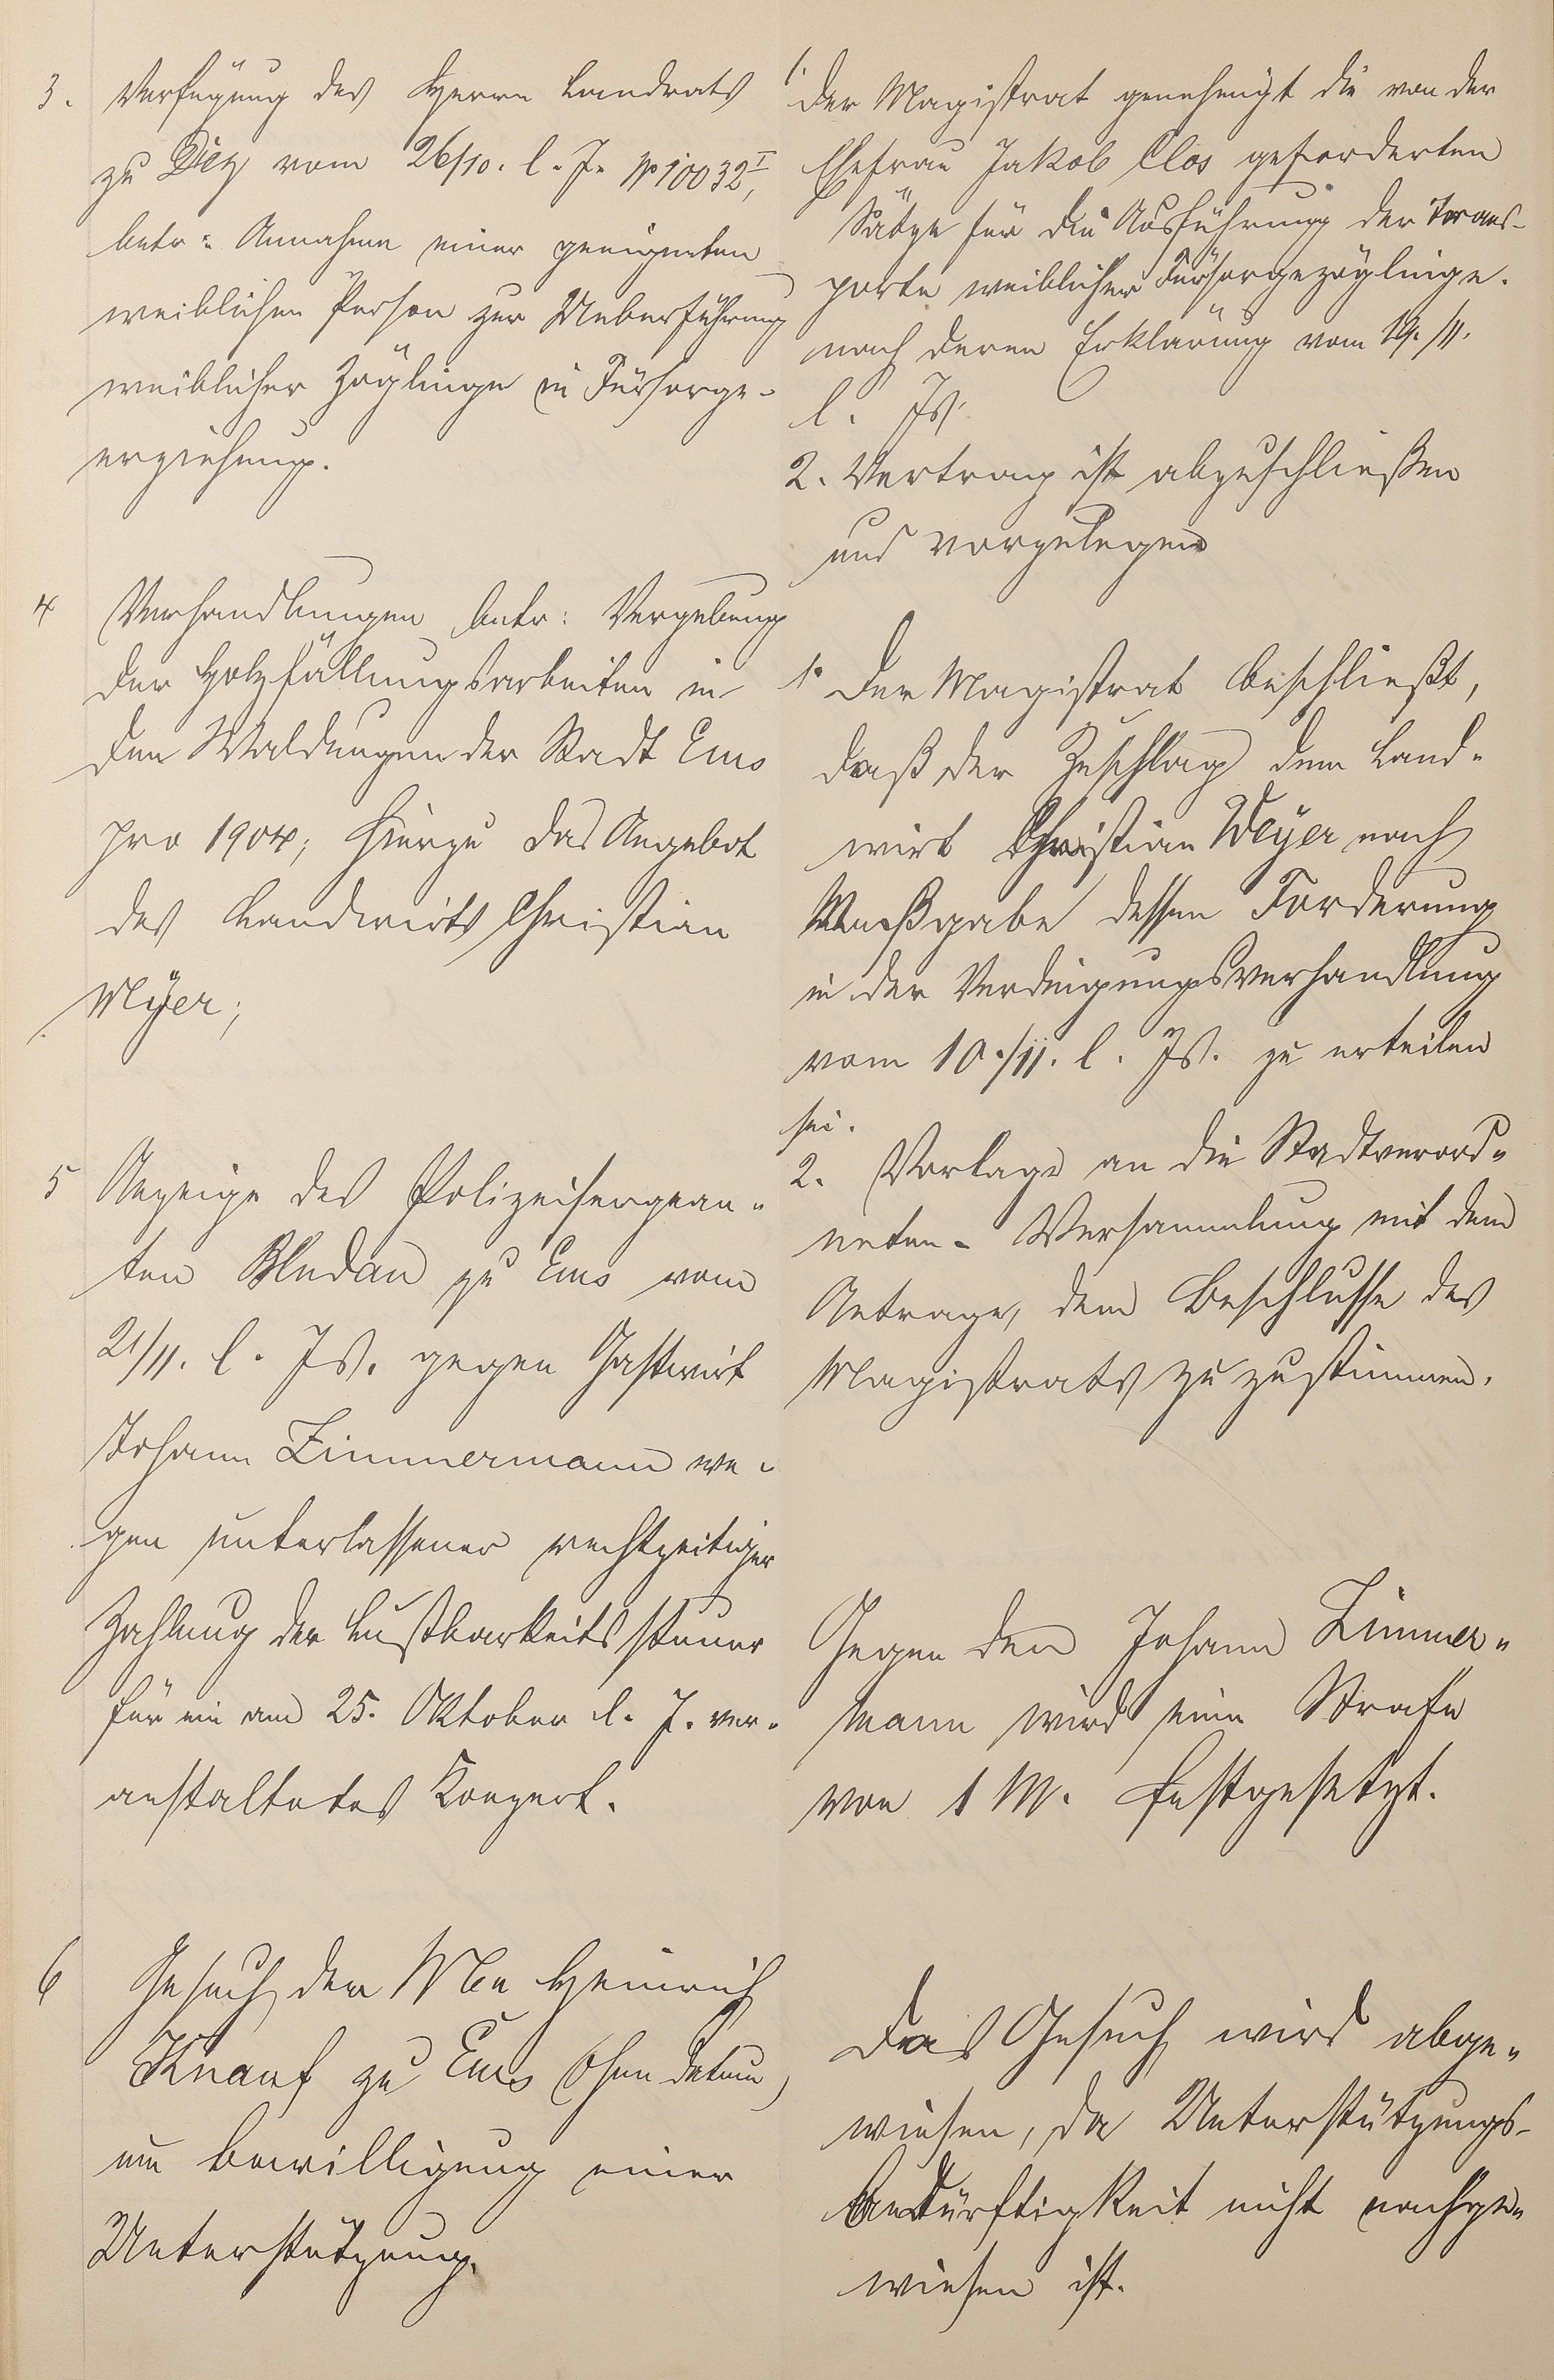 3. Verfügung des Herrn Landrats
zu Diez vom 26/10. l. J. No 10032 I,
betr: Annahme einer geeigneten
weiblichen Person zur Ueberführung
weiblicher Zöglinge in Fürsorge-
erziehung.
1. Der Magistrat genehmigt die von der
Ehefrau Jakob Clos geforderten
Sätze für die Ausführung der Trans-
porte weiblicher Fürsorgezöglinge.
nach deren Erklärung vom 19./11.
l. Js.
2. Vertrag ist abzuschließen
und vorzulegen
4 Verhandlungen betr: Vergebung
der Holzfällungsarbeiten in
den Waldungen der Stadt Ems
pro 1904; hierzu das Angebot
des Landwirts Christian
Meyer;
1. Der Magistrat beschließt,
daß der Zuschlag dem Land-
wirt Christian Weyer nach
Maßgabe dessen Forderung
in der Verdingungsverhandlung
vom 10./11. l. Js. zu erteilen
sei.
2. Vorlage an die Stadtverord-
neten- Versammlung mit dem
Antrage, dem Beschlusse des
Magistrats zuzustimmen.
5 Anzeige des Polizeisergean-
ten Bledau zu Ems vom
21/11. l. Js. gegen Gastwirt
Johann Zimmermann we-
gen unterlassener rechtzeitiger
Zahlung der Lustbarkeitssteuer
für ein am 25. Oktober d. J. ver-
anstaltetes Konzert.
Gegen den Johann Zimmer-
mann wird eine Strafe
von 1 M. festgesetzt.
6 Gesuch der Wwe Heinrich
Knauf zu Ems (ohne Datum)
um Bewilligung einer
Unterstützung.
Das Gesuch wird abge-
wiesen, da Unterstützungs-
bedürftigkeit nicht nachge-
wiesen ist.